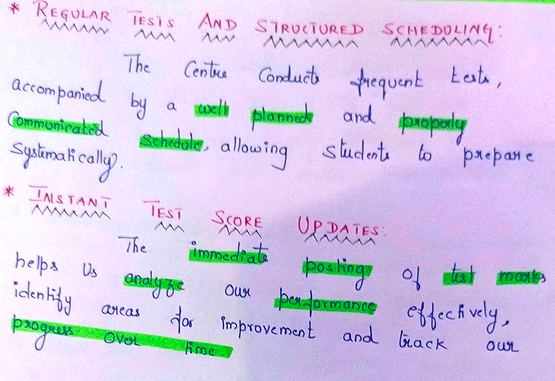 * REGULAR TESTS AND STRUCTURED SCHEDULING:
The Centre Conducts frequent tests,
accompanied by a well planned and properly
Communicated Schedule, allowing students to prepare
Systematically.
* INSTANT TEST SCORE UPDATES:
The immediate posting of test marks
helps Us analyze our performance effectively,
identify areas for improvement and track our
progress over time.